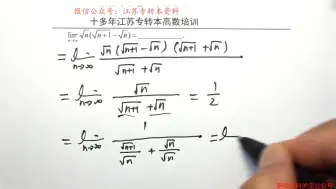 微信公众号：江苏专转本资料
十多年江苏专转本高数培训
lim n→∞ √n(√n+1 − √n) = ________.
= lim n→∞ √n (√n+1 − √n) (√n+1 + √n) / (√n+1 + √n)
= lim n→∞ √n / (√n+1 + √n) = 1/2
= lim n→∞ 1 / (√n+1/√n + √n/√n) = l